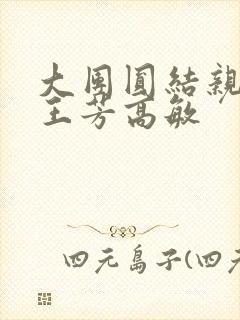 大团圆結親
王芳高敏
四元島子(四元